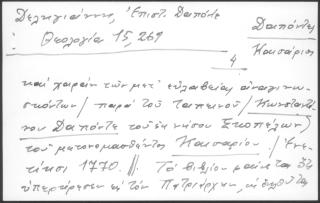 Δεληγιάννης, Ἐπιστ. Δαπόντε
Δαπόντες
Θεολογία 15, 269
Καισάριος
4
καὶ χαρὰν τῶν μετ' εὐλαβείας ἀναγινω-
σκόντων / παρὰ τοῦ ταπεινοῦ / Κωνσταντί-
νου Δαπόντε τοῦ ἐκ νήσου Σκοπέλων /
τοῦ μετονομασθέντος Καισαρίου. / Ἐνε-
τίησι 1770. //. Τὸ βιβλίον φαίνεται ὅτι
εἰς τὸν Πατριάρχην,